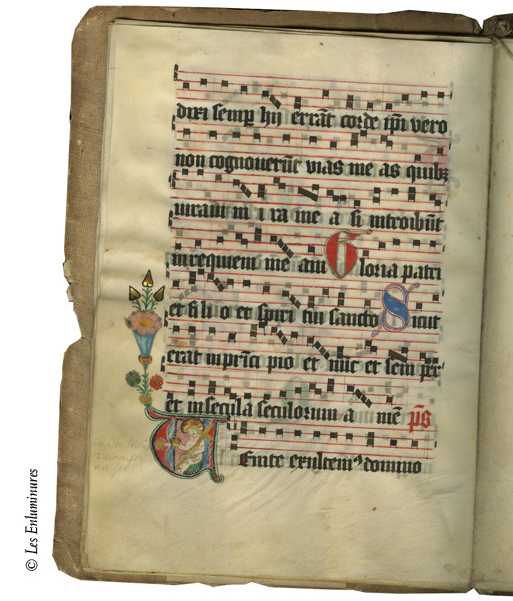 dixi semp hij errāt corde ipi vero
non cognouerūt vias me as quibꝫ
iuraui in i ra me a si introibūt
in requiem me am Gloria patri
et fi li o et spiri tui sancto Sicut
erat in prīci pio et nūc et sem per
et in secula seculorum a mē p̄s
Uenite exultemꝰ domino
© Les Enluminures